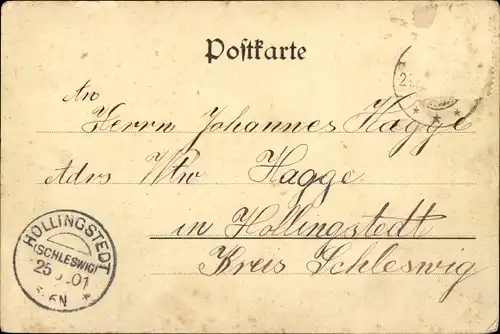 Postkarte
An
Herrn Johannes Hagge
Adrs Wtw Hagge
in Hollingstedt
Kreis Schleswig
HOLLINGSTEDT
(SCHLESWIG)
25 01
N